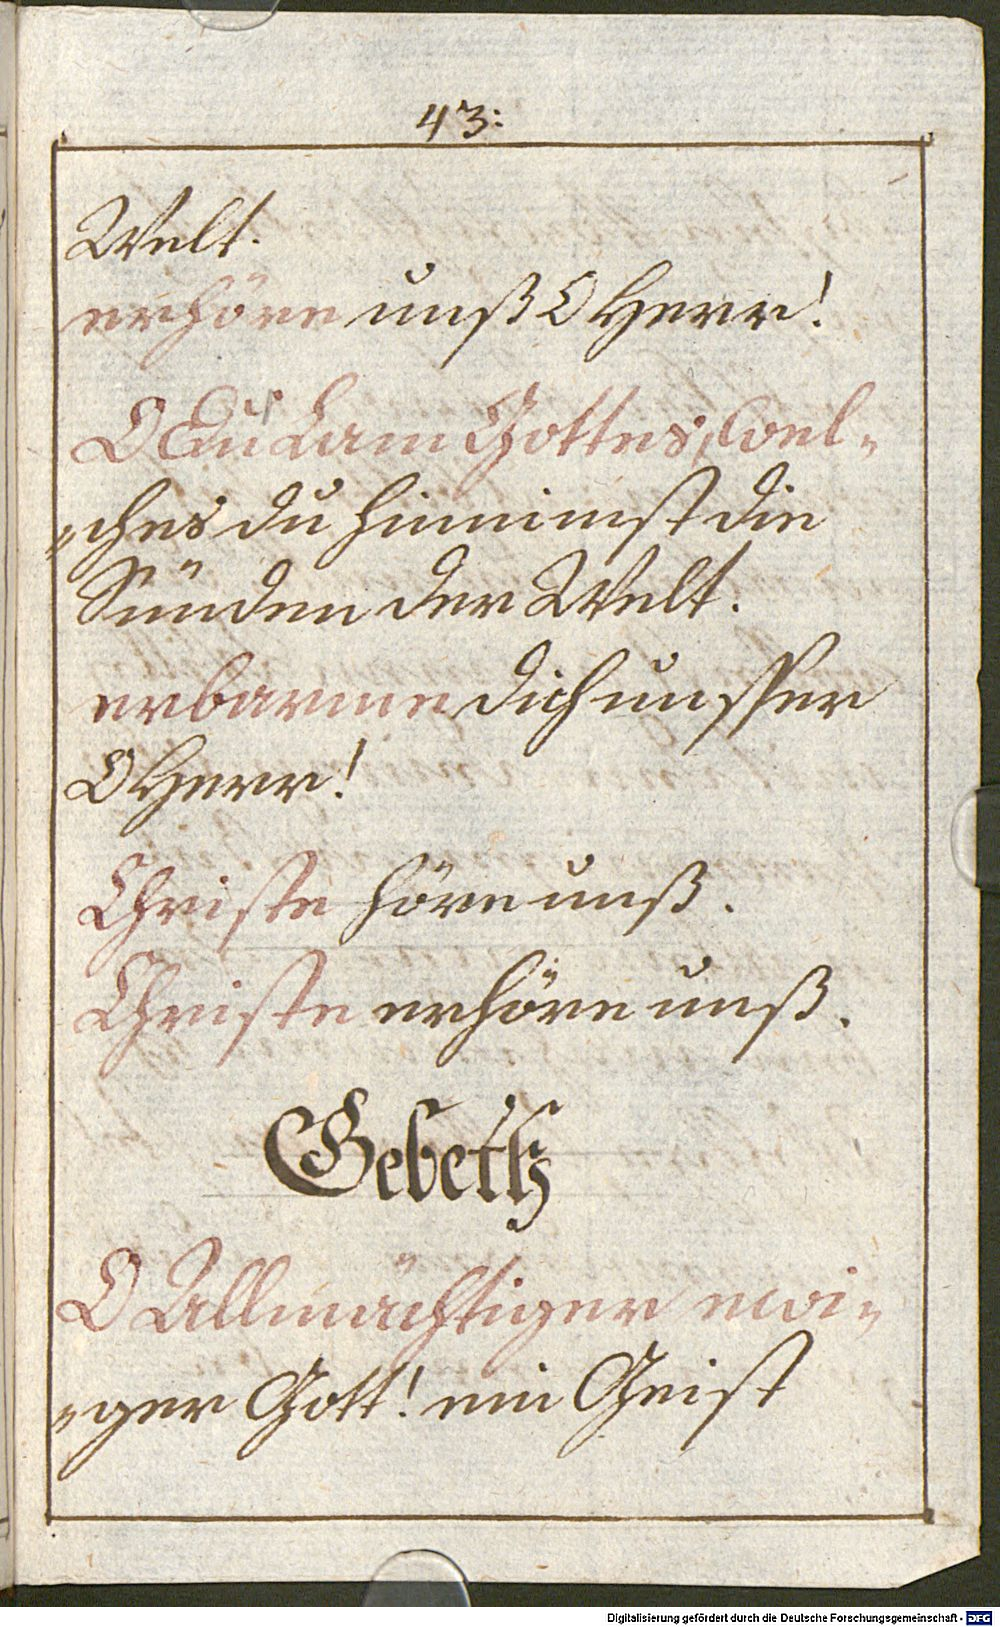 43:
Welt.
erhöre unß O Herr!
O Du Lam Gottes, wel=
=ches du hinnimst die
Sünden der Welt.
erbarme dich unsser
O Herr!
Christe höre unß.
Christe erhöre unß.
Gebeth
O Allmächtiger ewi=
=ger Gott! ein Geist
Digitalisierung gefördert durch die Deutsche Forschungsgemeinschaft - DFG